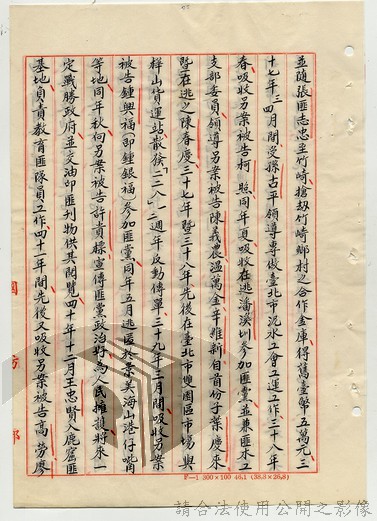 並隨張匪志忠至竹崎搶劫竹崎鄉村之合作金庫得舊臺幣五萬元三
十七年三四月間受探古平領導專做臺北市泥水工會工運工作三十八年
春吸收另案被告柯照同年夏吸收在逃潘溪圳參加匪黨並兼匪木工
支部委員領導另案被告陳義農溫萬金辛維新自首份子葉慶來
暨在逃之陳春慶三十七年暨三十八年先後在臺北市雙園區市場與
樺山貨運站散發「二二八」二週年反動傳單三十九年三月間吸收另案
被告鍾興福(即鍾銀福)參加匪黨同年五月逃匿於景美海山港仔嘴
等地同年秋向另案被告許貢標宣傳匪黨政治好為人民擁護將來一
定戰勝政府並交油印匪刊物供其閱覽四十年十二月王忠賢入鹿窟匪
基地負責教育匪隊員工作四十一年間先後又吸收另案被告高勞廖
國防部
F—1 300×100 46.1 (38.8×26.8)
請合法使用公開之影像